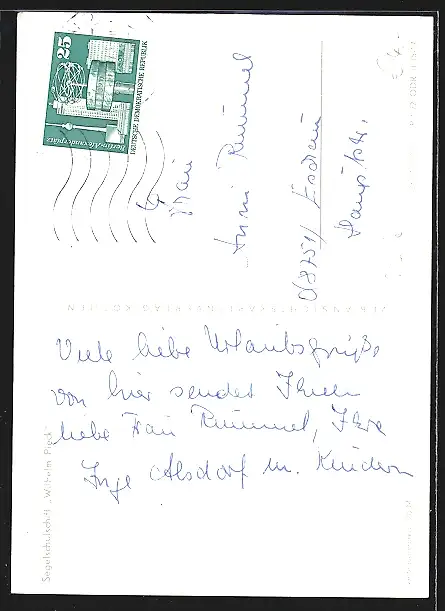 25
DEUTSCHE DEMOKRATISCHE REPUBLIK
Berlin-Alexanderplatz
Frau
Rummel
(8751)
Hauptstr.
VEB ANSICHTSKARTENVERLAG KÖTHEN
Viele liebe Urlaubsgrüße
von hier sendet Ihnen
liebe Frau Rummel, Ihre
Inge Alsdorf m. Kindern
Segelschulschiff „Wilhelm Pieck"